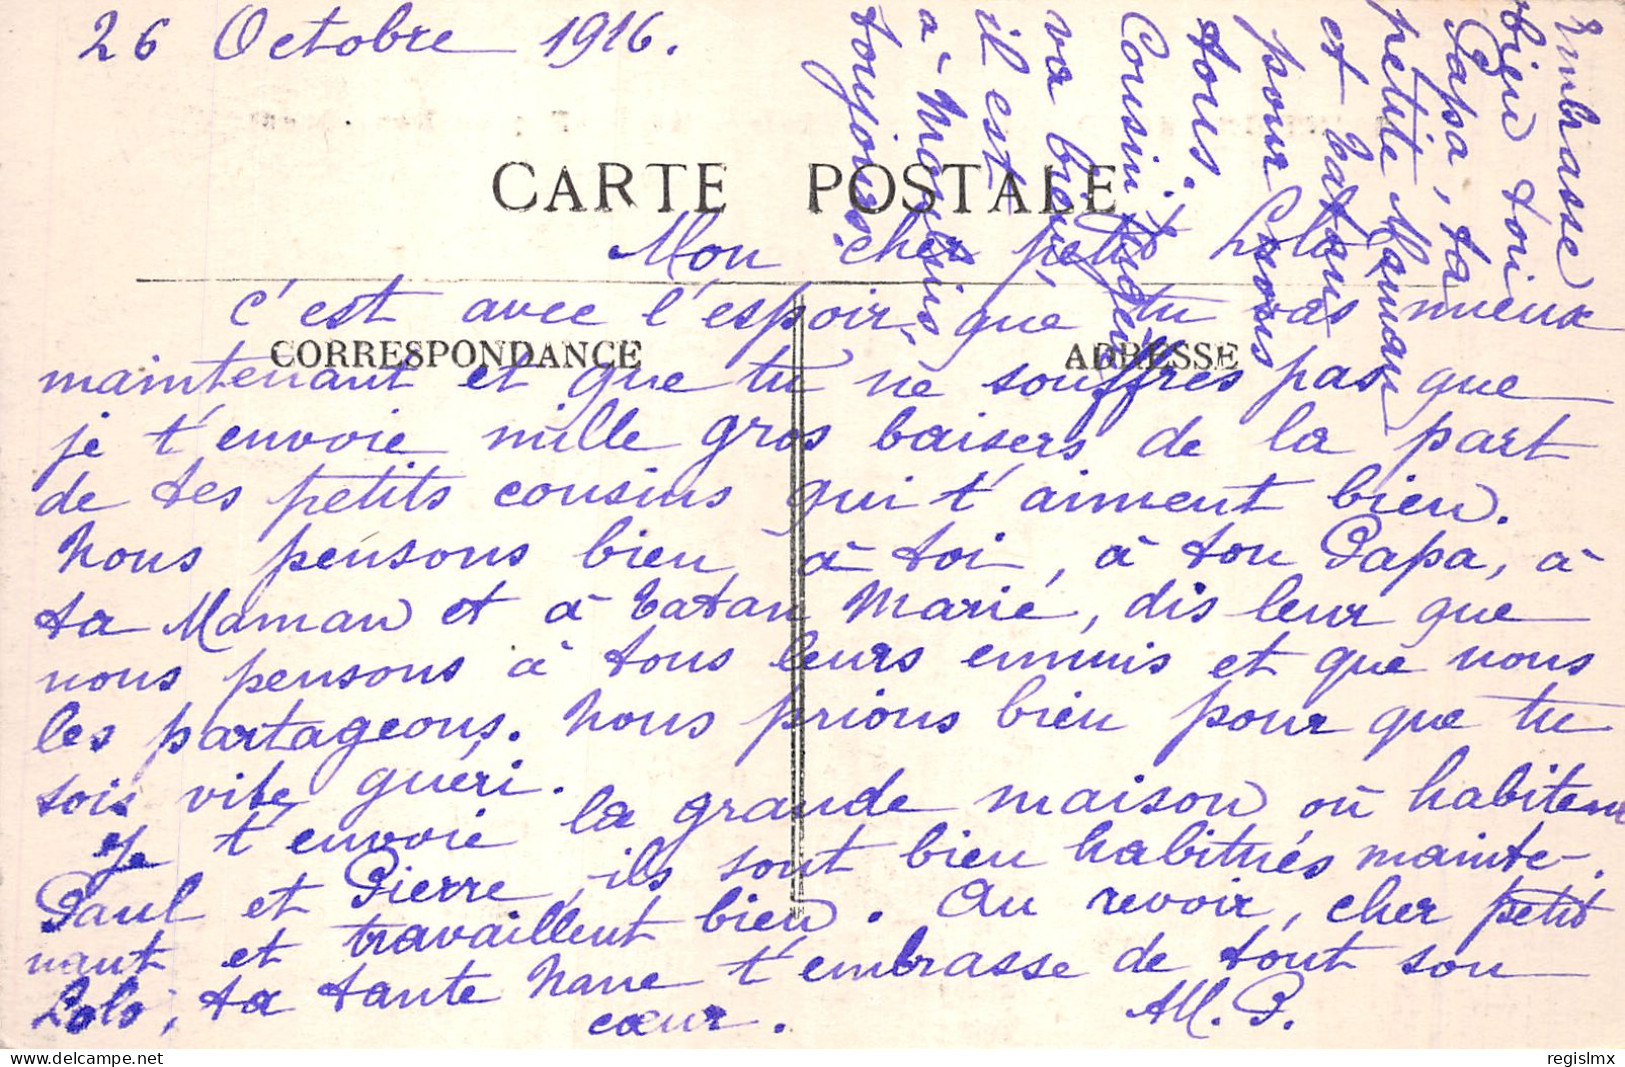 26 Octobre 1916.
CARTE POSTALE
Mon cher petit Lolo,
c'est avec l'espoir que tu vas mieux
CORRESPONDANCE
ADRESSE
maintenant et que tu ne souffres pas que
je t'envoie mille gros baisers de la part
de tes petits cousins qui t'aiment bien.
Nous pensons bien à toi, à ton Papa, à
ta Maman et à Tatan Marie, dis leur que
nous pensons à tous leurs ennuis et que nous
les partageons. Nous prions bien pour que tu
sois vite guéri.
Je t'envoie la grande maison où habitent
Paul et Pierre, ils sont bien habitués mainte-
nant et travaillent bien. Au revoir, cher petit
Lolo, ta tante Nane t'embrasse de tout son
cœur.
M. P.
Embrasse
bien toi
Papa, ta
petite Maman
et Tatan
pour
tous.
Cousin
va bien,
il est
à
toujours
regislmx